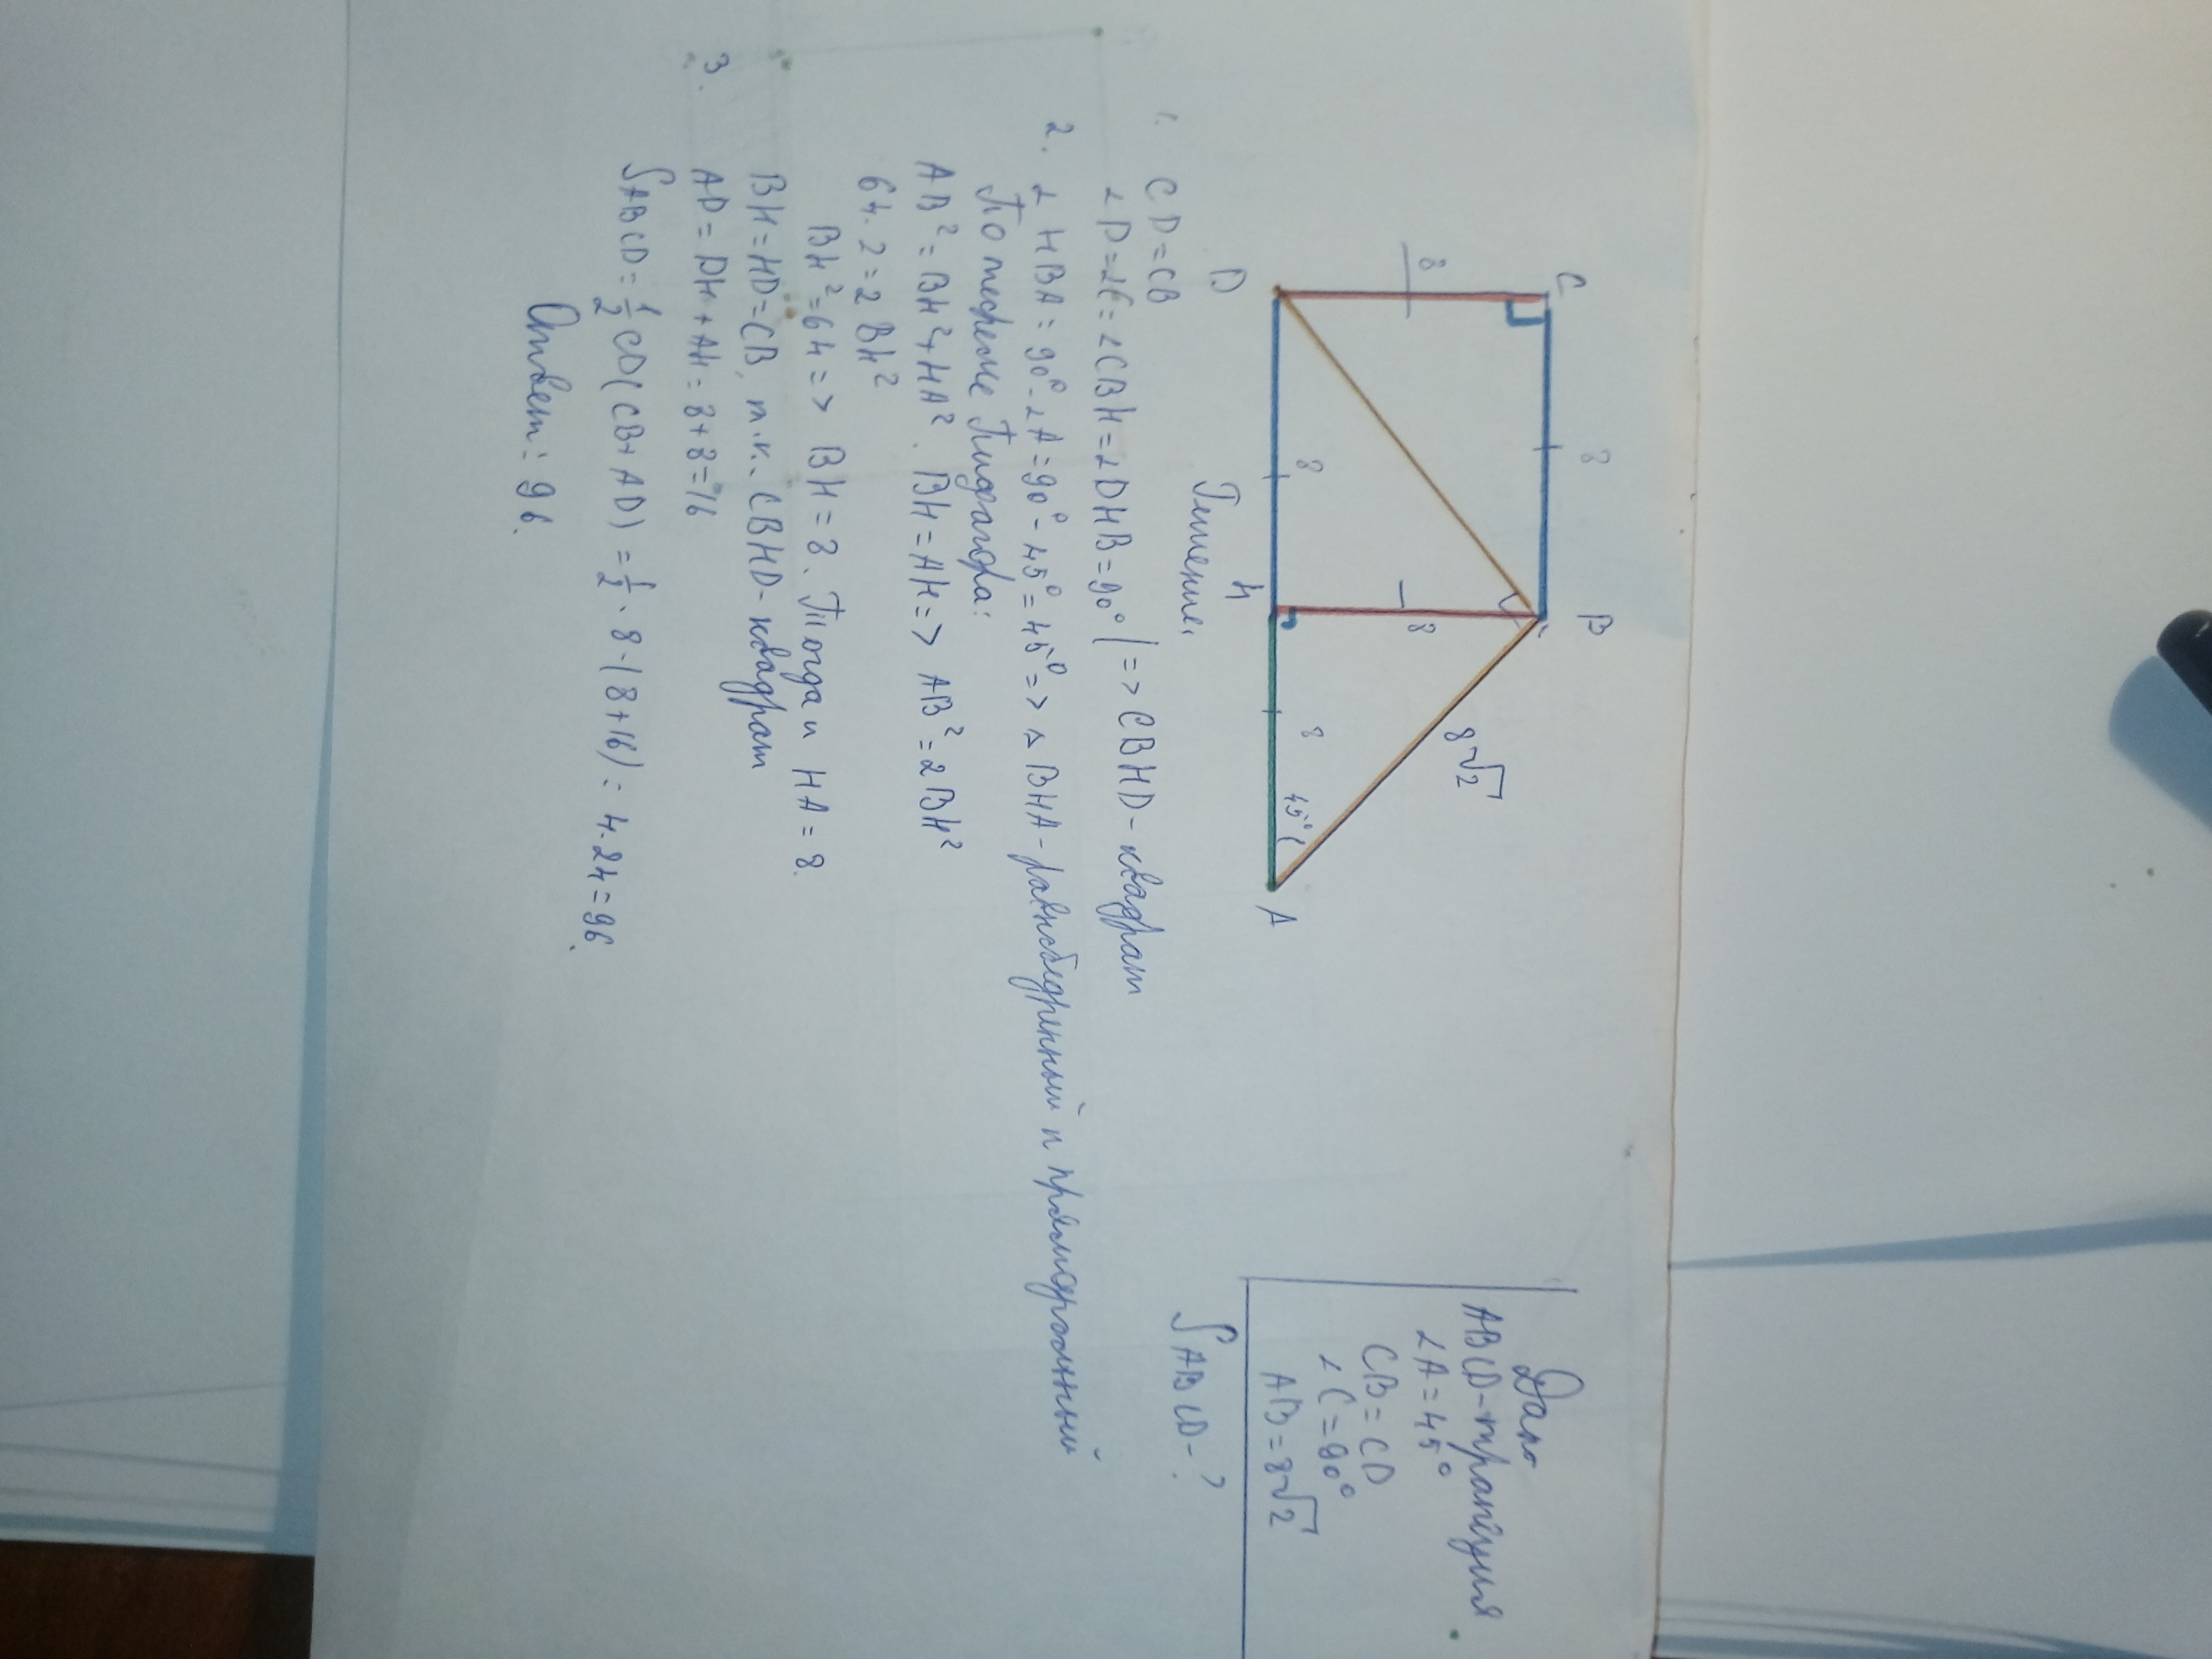 C 8 B
8 8 8√2
D 8 H 8 45° A
Дано
ABCD-трапеция
∠A=45°
CB=CD
∠C=90°
AB=8√2
SABCD-?
Решение:
1. CD=CB
∠D=∠C=∠CBH=∠DHB=90° | => CBHD-квадрат
2. ∠HBA=90°-∠A=90°-45°=45° => △BHA-равнобедренный и прямоугольный
По теореме Пифагора:
AB²=BH²+HA². BH=AH=> AB²=2BH²
64·2=2BH²
BH²=64=> BH=8. Тогда и HA=8.
3. BH=HD=CB, т.к. CBHD-квадрат
AD=DH+AH=8+8=16
SABCD=1/2 CD(CB+AD)=1/2·8·(8+16)=4·24=96.
Ответ: 96.